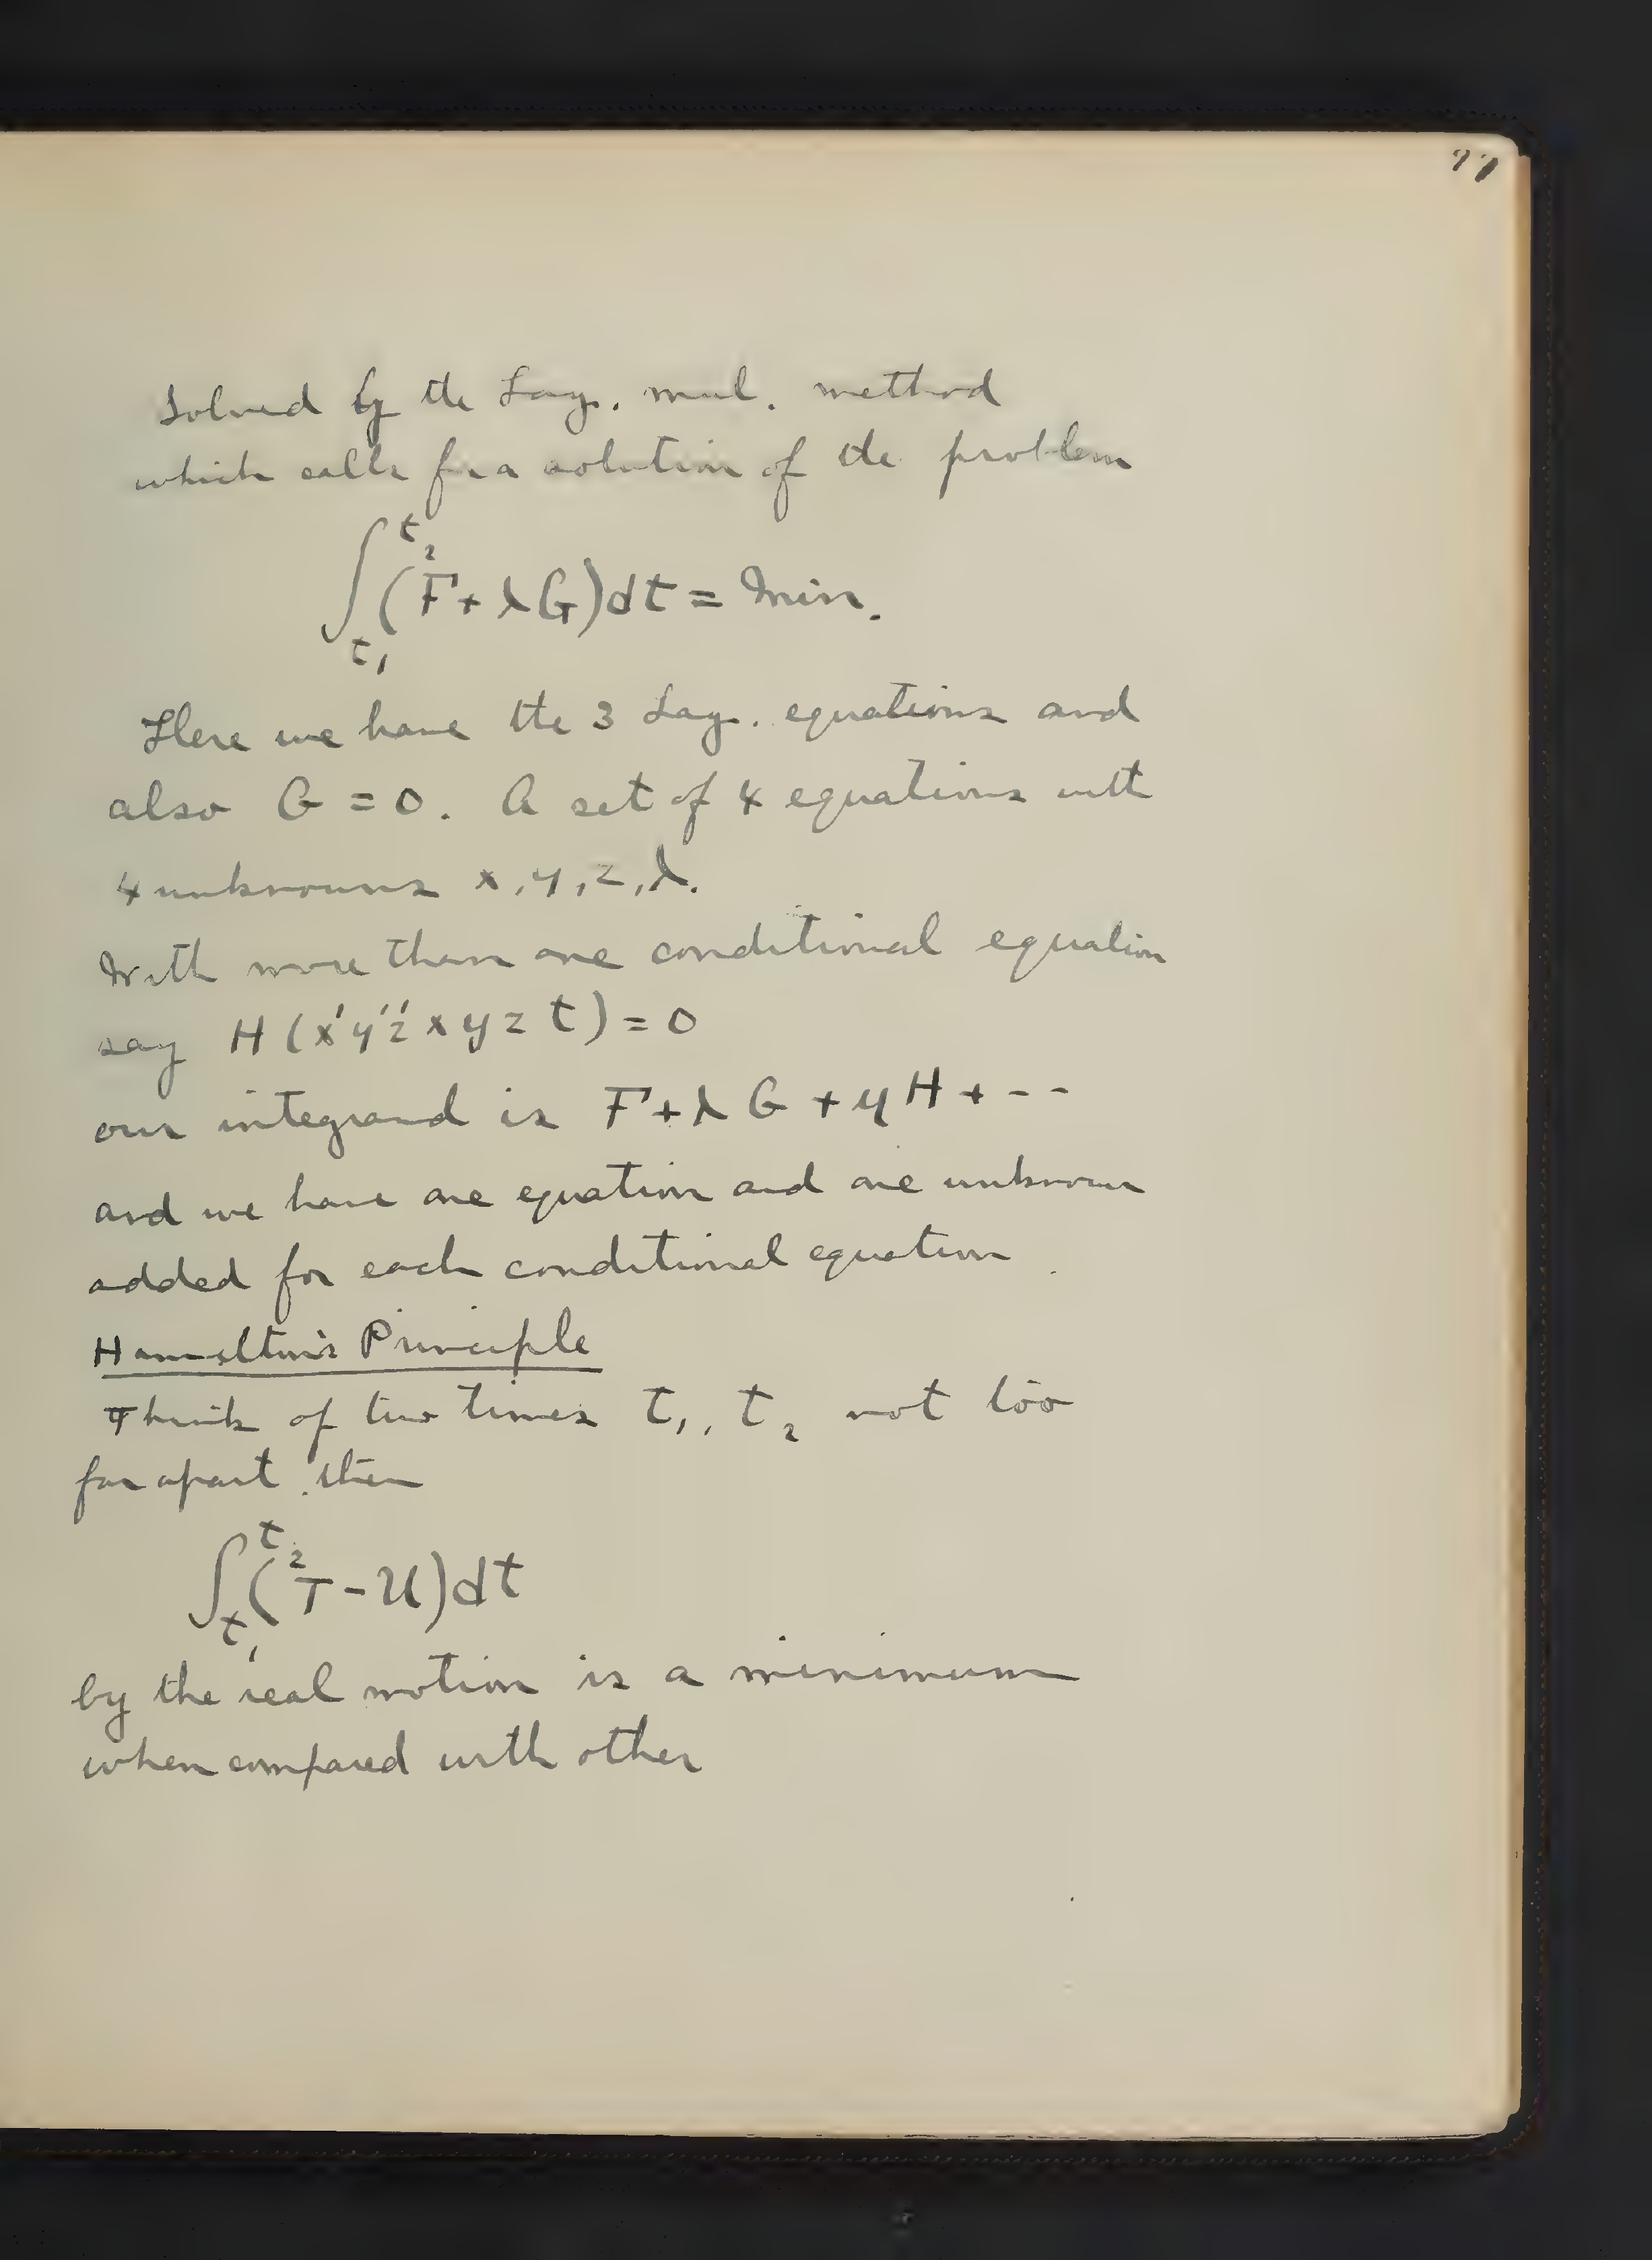 77
Solved by the Lag. mul. method
which calls for a solution of the problem
∫_{t₁}^{t₂} (F + λG)dt = Min.
Here we have the 3 Lag. equations and
also G = 0. A set of 4 equations with
4 unknowns x, y, z, λ.
With more than one conditional equation
say H (x'y'z' x y z t) = 0
our integrand is F + λ G + μ H + - -
and we have one equation and one unknown
added for each conditional equation.
Hamilton's Principle
Think of two times t₁, t₂ not too
far apart. then
∫_{t₁}^{t₂} (T - U)dt
by the real motion is a minimum
when compared with other